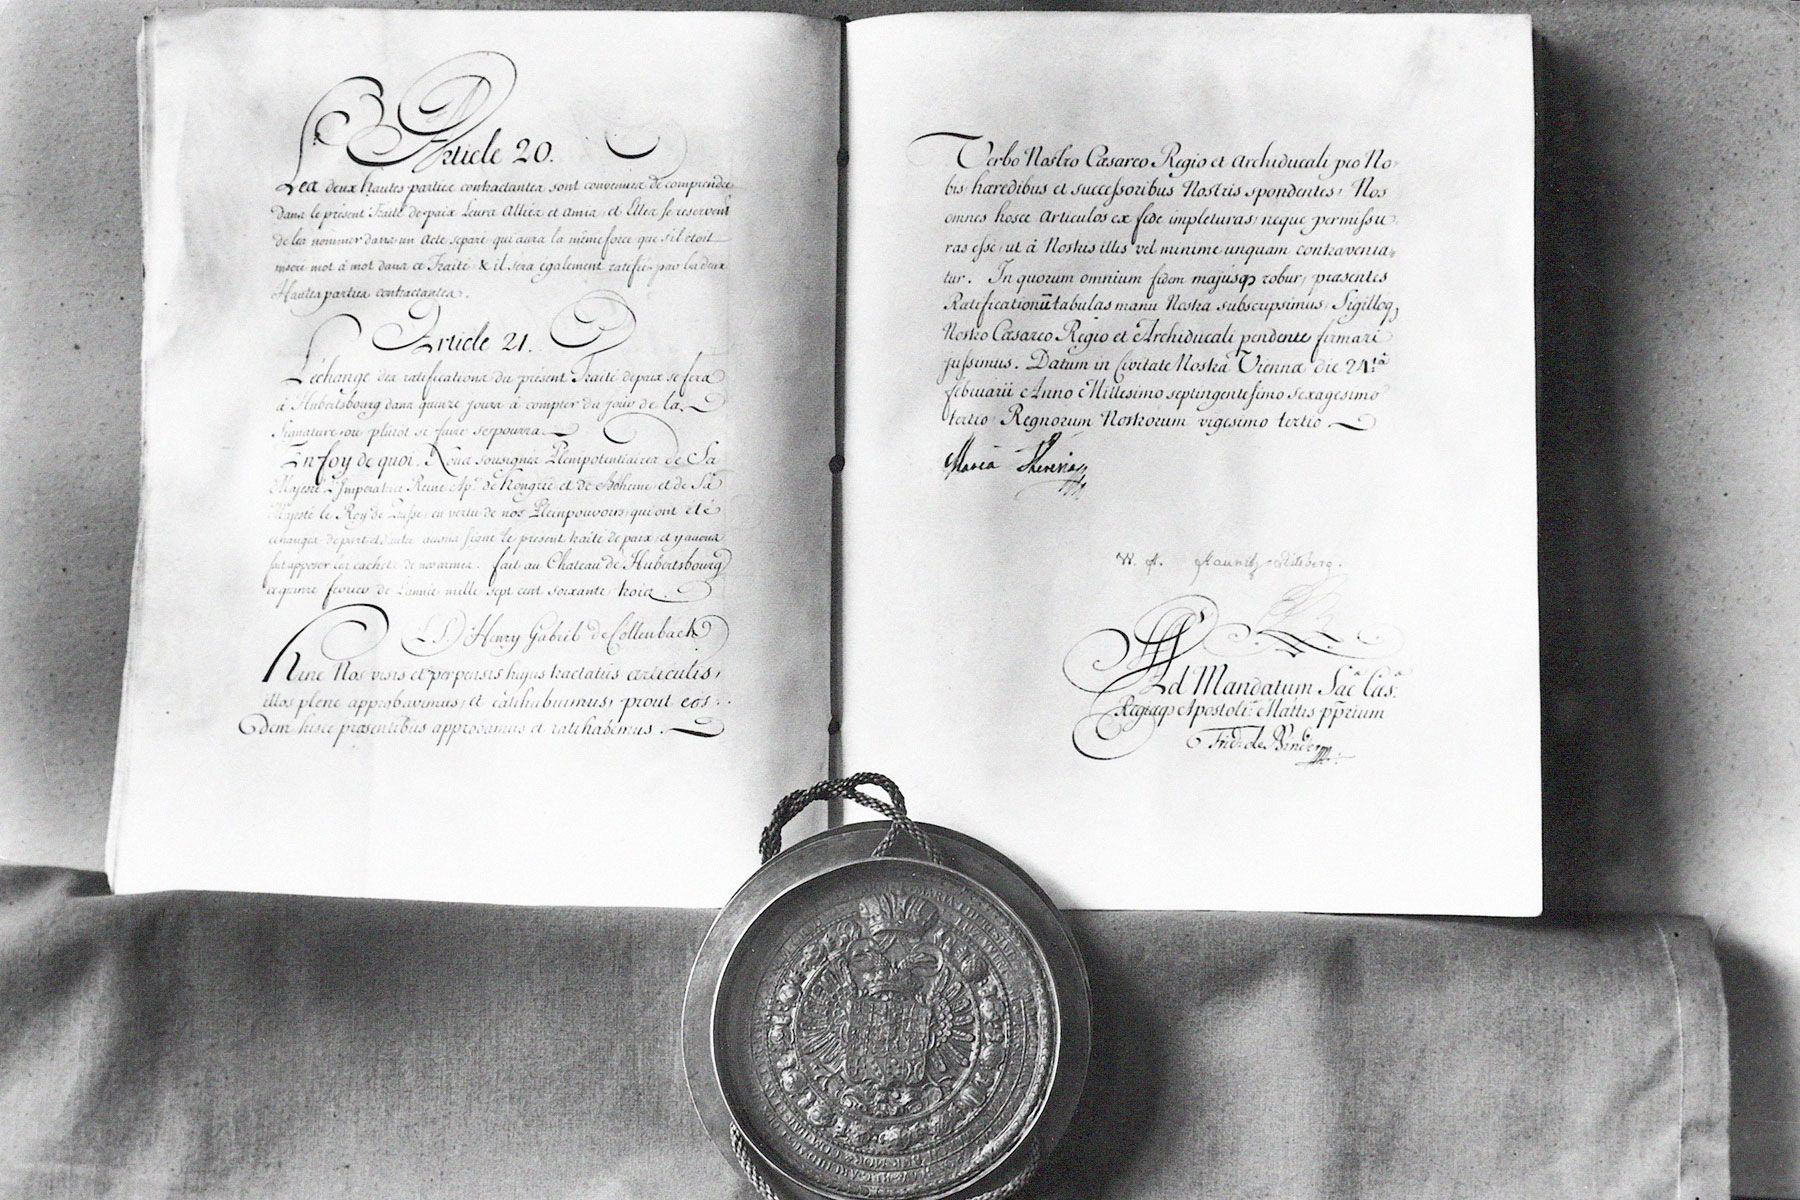 Article 20.
Les deux hautes parties contractantes sont convenues de comprendre
dans le présent Traité de paix Leurs Alliés et Amis, et Elles se reservent
de les nommer dans un Acte separé, qui aura la même force que s'il étoit
inseré mot à mot dans ce Traité & il sera également ratifié par les deux
Hautes parties contractantes.
Article 21.
L'échange des ratifications du présent Traité de paix se fera
à Hubertsbourg dans quinze jours à compter du jour de la
Signature, ou plûtot si faire se pourra.
En foy de quoi. Nous soussignés Plenipotentiaires de Sa
Majesté L'Imperatrice Reine Ap. de Hongrie et de Bohéme, et de Sa
Majesté le Roy de Prusse, en vertu de nos Pleinpouvoirs, qui ont été
échangés de part et d'autre avons signé le présent traité de paix, et y avons
fait apposer les cachets de nos armes. fait au Chateau de Hubertsbourg
ce quinze fevrier de L'année mille sept cent soixante trois.
(L.S.) Henry Gabriel de Collenbach
Hinc Nos visis et perpensis hujus tractatus articulis,
illos plene approbavimus, et ratihabuimus, prout eos-
dem hisce præsentibus approbamus et ratihabemus.
Verbo Nostro Cæsareo Regio et Archiducali pro No-
bis, hæredibus et successoribus Nostris spondentes, Nos
omnes hosce Articulos ex fide impleturas, neque permissu-
ras esse, ut à Nostris illis vel minime unquam contravenia-
tur. In quorum omnium fidem majusq robur, præsentes
Ratificationũ tabulas manu Nostra subscripsimus, Sigilloq
Nostro Cæsareo Regio et Archiducali pendente firmari
jussimus. Datum in Civitate Nostrâ Viennæ die 24.tâ
februarii Anno Millesimo septingentesimo sexagesimo
tertio, Regnorum Nostrorum vigesimo tertio.
Maria Theresia
W. A. Kaunitz-Ritberg.
Ad Mandatum Sac. Cæs.
Regiæq Apostoli. Mattis pprium
Frid. de Binder